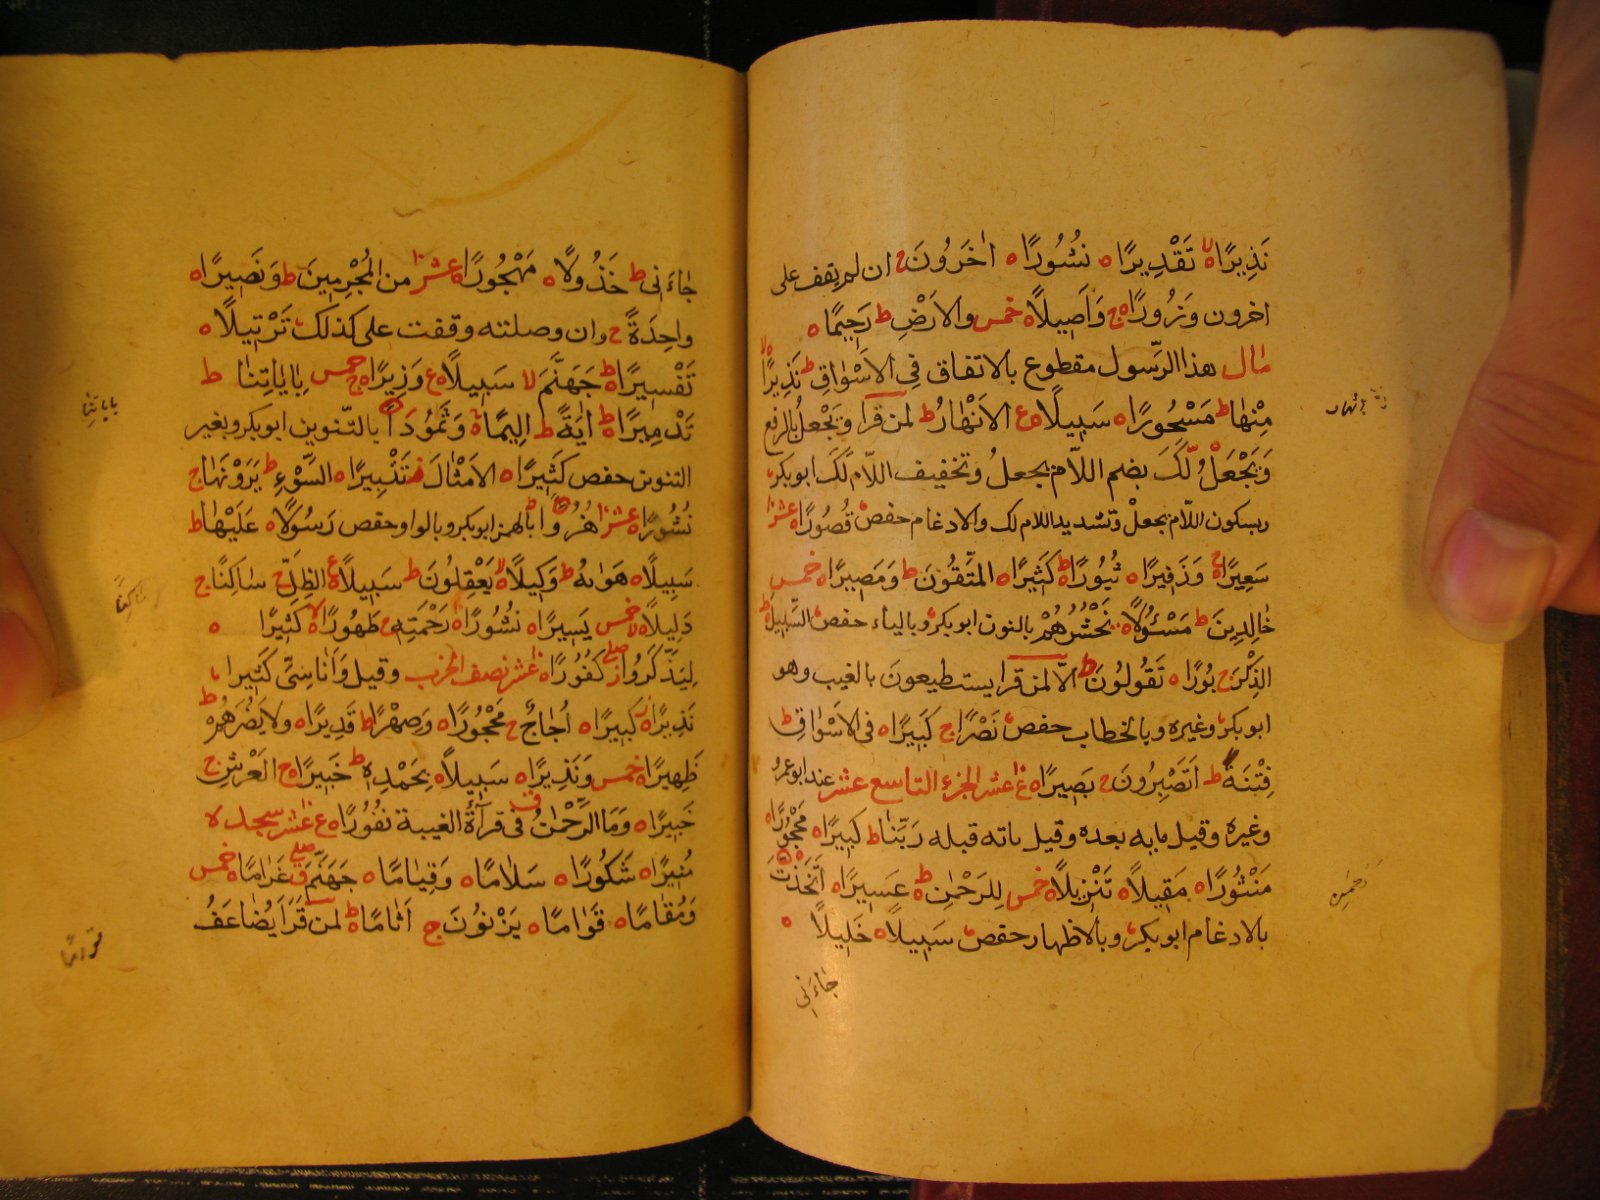 نَذِيرًا ۙ لا تَقْدِيرًا ه نُشُورًا ه اٰخَرُونَ ج ان لم يقف على
اخرون وَزُورًا ه ج وَاَصِيلًا ه خمس والاَرْضِ ط رَحِيمًا ه
مال هذا الرّسول مقطوع بالاتفاق فِى الاَسْوَاقِ ط نَذِيرًا ه لا
مِنْهَا ط مَسْحُورًا ه سَبِيلًا ه ع الاَنْهَارُ ط لمن قرا وَيَجْعَلُ بالرفع
وَيَجْعَلْ لَّكَ بضم اللّام يجعلُ وتخفيف اللّام لَكَ ابو بكر
وبسكون اللّام يجعلْ وتشديد اللام لك والادغام حفص قُصُورًا ه عشر
سَعِيرًا ه ج وَزَفِيرًا ه ثُبُورًا ه ط كَثِيرًا ه المُتَّقُونَ ط وَمَصِيرًا ه خمس
خَالِدِينَ ط مَسْئُولًا ه نَحْشُرُهُمْ بالنون ابو بكر وبالياء حفص السَّبِيلَ ط
الذِّكْرَ ج بُورًا ه تَقُولُونَ ط الّا لمن قرا يستطيعون بالغيب وهو
ابو بكر وغيره وبالخطاب حفص نَصْرًا ج كَبِيرًا ه فى الاسْوَاقِ ط
فِتْنَةً ط اَتَصْبِرُونَ ج بَصِيرًا ه ع عشر الجزء التاسع عشر عند ابو عمرو
وغيره وقيل مايه بعده وقيل باته قبله رَبَّنَا ط كَبِيرًا ه مَحْجُورًا ه
مَنْثُورًا ه مَقِيلًا ه تَنْزِيلًا ه خمس لِلرَّحْمٰنِ ط عَسِيرًا ه اتَّخَذْتُ
بالادغام ابو بكر وبالاظهار حفص سَبِيلًا ه خَلِيلًا ه
جَاءَنِى
جَاءَنِى ط خَذُولًا ه مَهْجُورًا ه عشر من المُجْرِمِينَ ط وَنَصِيرًا ه
واحِدَةً ج وان وصلته وقفت على كذلك تَرْتِيلًا ه
تَفْسِيرًا ه ط جَهَنَّمَ لا سَبِيلًا ه ع وَزِيرًا ه ج خمس بِاٰيَاتِنَا ط
تَدْمِيرًا ه ط اٰيَةً ط اَلِيمًا ه وَثَمُودَاْ بالتّنوين ابو بكر وبغير
التنوين حفص كَثِيرًا ه الاَمْثَالَ تَتْبِيرًا ه السَّوْءِ ط يَرَوْنَهَا ج
نُشُورًا ه عشر هُزُوًا بالهمز ابو بكر وبالواو حفص رَسُولًا ه عَلَيْهَا ط
سَبِيلًا ه هَوٰيهُ ط وَكِيلًا ه لا يَعْقِلُونَ ط سَبِيلًا ه ع الظِلّ ج سَاكِنًا ج
دَلِيلًا ه لا خمس يَسِيرًا ه نُشُورًا ه رَحْمَتِهِ ج طَهُورًا ه لا كَثِيرًا ه
لِيَذَّكَّرُوا صلى كُفُورًا ه عشر نصف الحزب وقيل وَاَنَاسِىَّ كَثِيرا
نَذِيرًا ه كَبِيرًا ه اُجَاجٌ ج مَحْجُورًا ه وَصِهْرًا ط قَدِيرًا ه ولا يَضُرُّهُمْ ط
ظَهِيرًا ه خمس وَنَذِيرًا ه سَبِيلًا ه بِحَمْدِهِ ط خَبِيرًا ه ج العَرْشِ ج
خَبِيرًا ه وَمَا الرَّحْمٰنُ ق فى قرآءَة الغيبة نُفُورًا ه ع عشر سجد لا
مُنِيرًا ه شَكُورًا ه سَلَامًا ه وَقِيَامًا ه جَهَنَّمَ صلى غَرَامًا ه خمس
وَمُقَامًا ه قَوَامًا ه يَزْنُونَ ج اَثَامًا ه ط لمن قَرَاَ يُضَاعَفُ